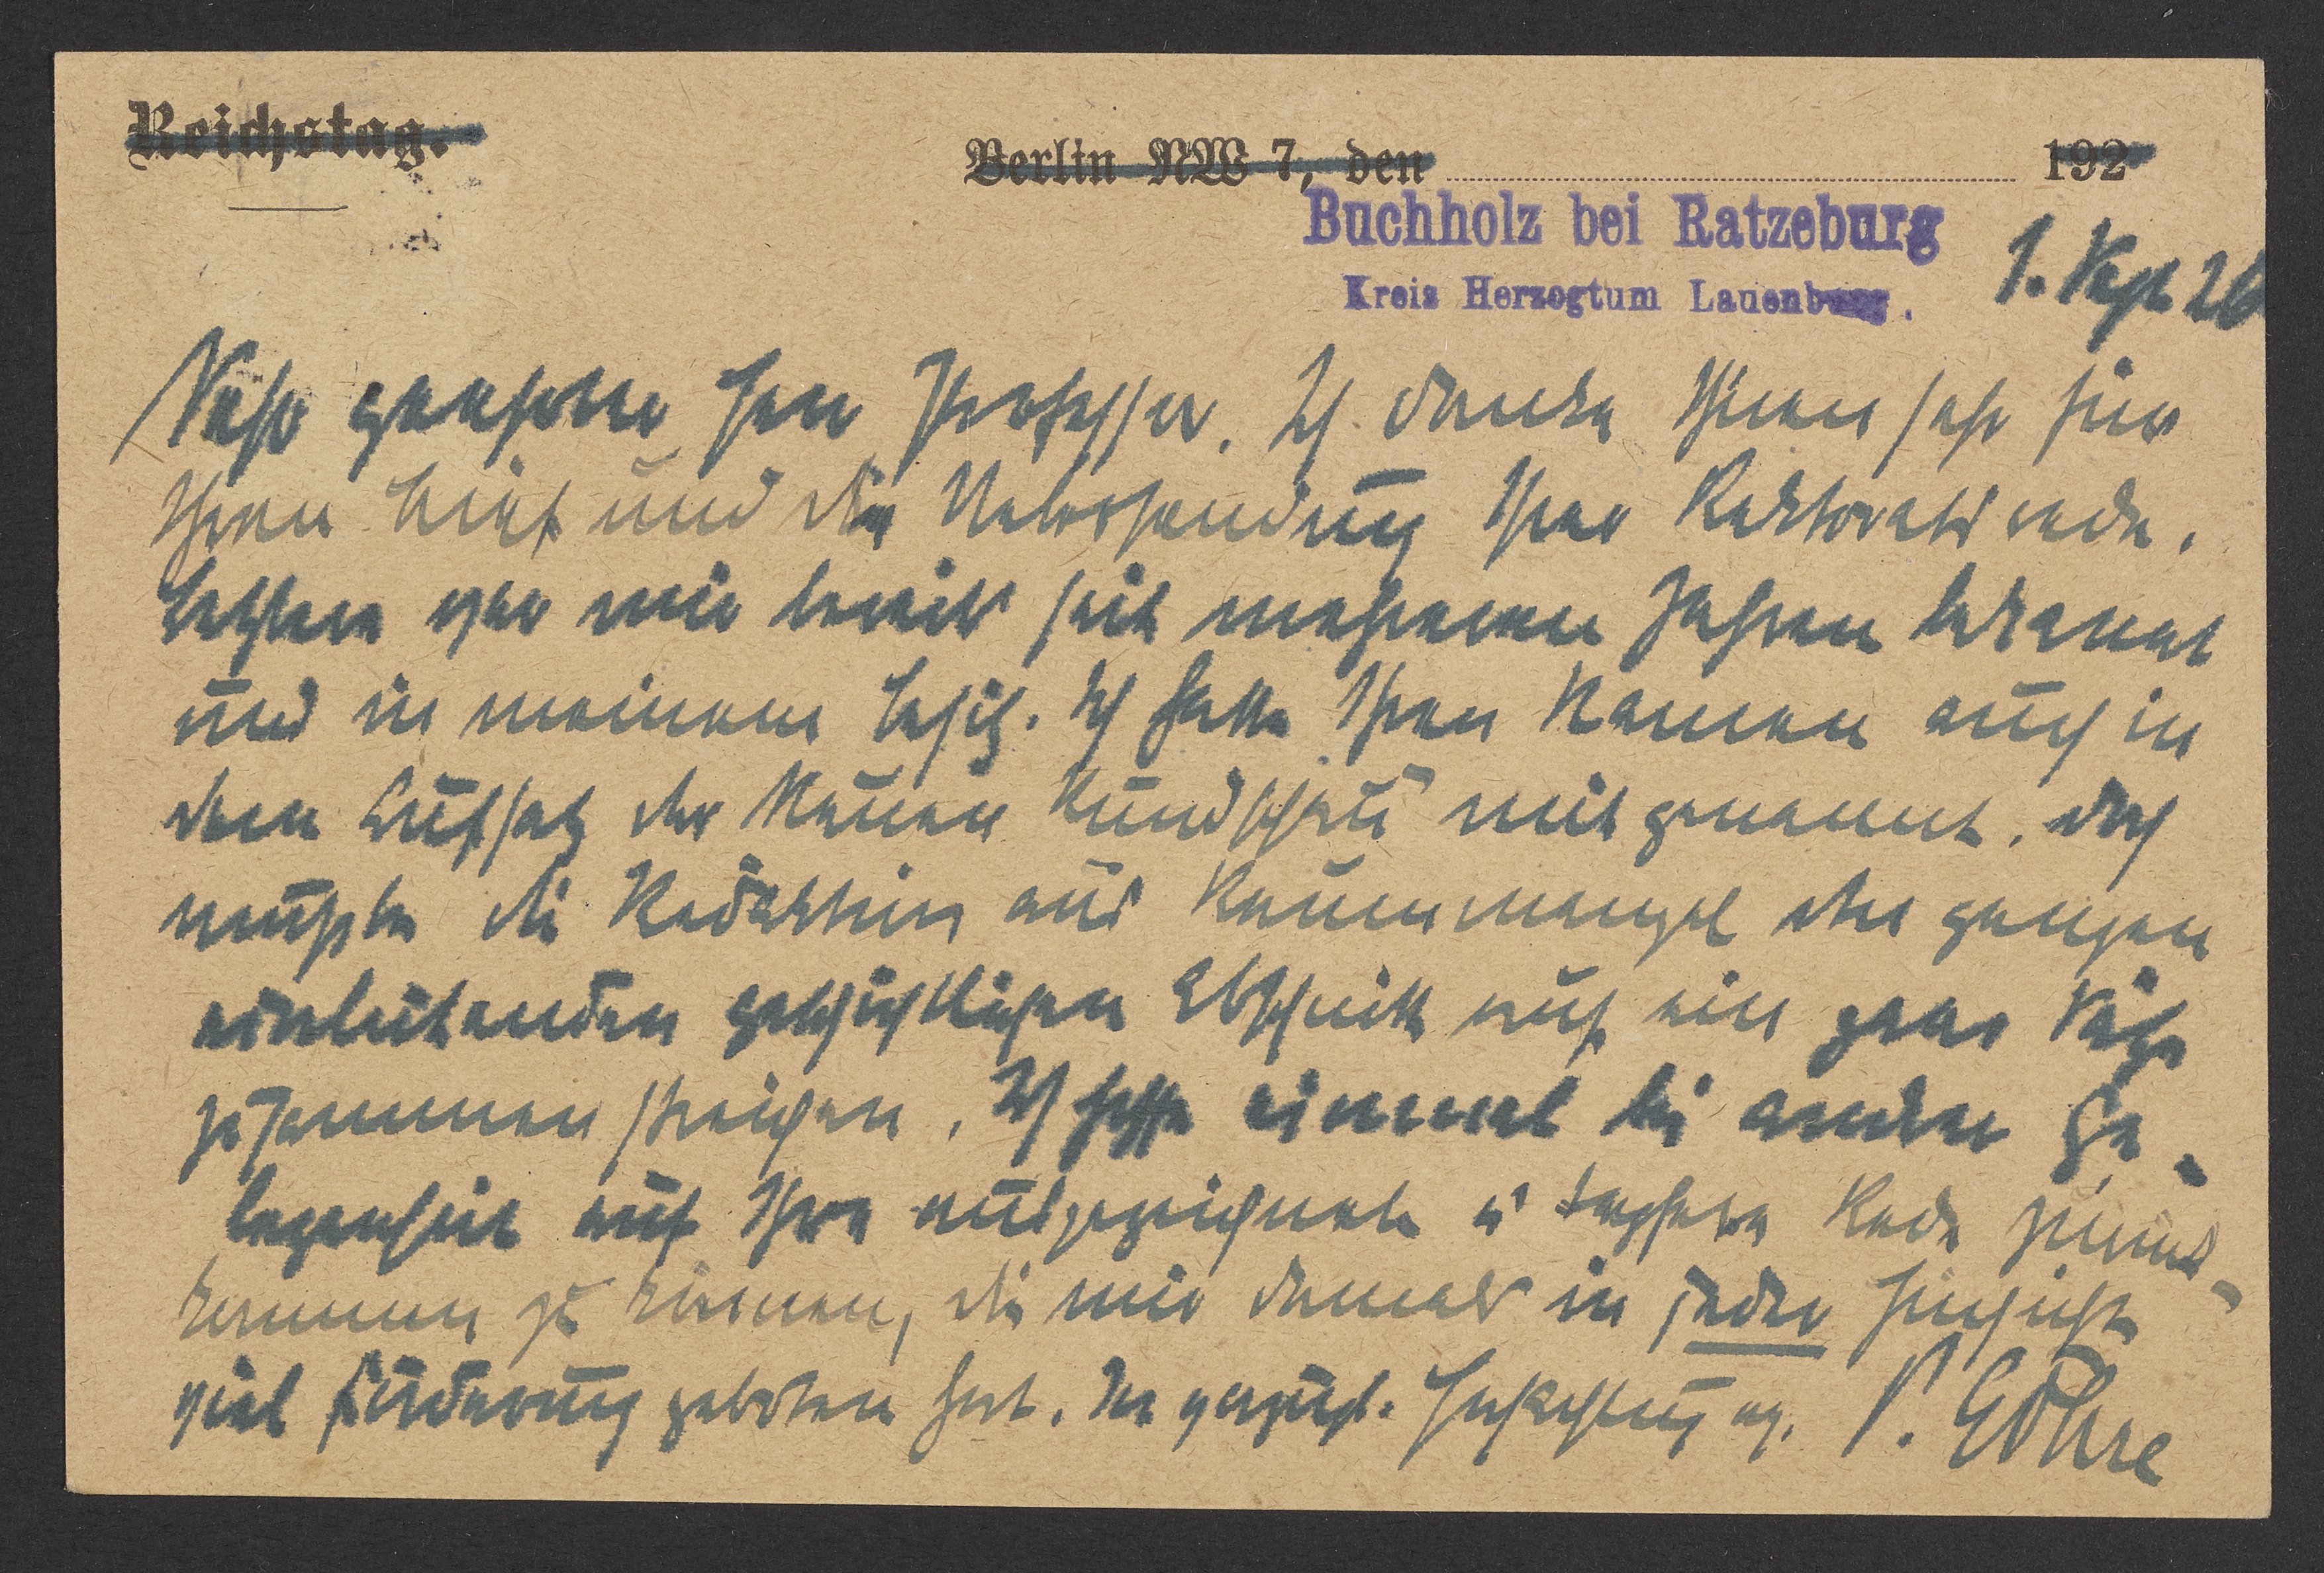 Reichstag.
Berlin NW 7, den 192
Buchholz bei Ratzeburg
Kreis Herzogtum Lauenburg.
1. Sept 26
Sehr geehrter Herr Professor. Ich danke Ihnen sehr für
Ihren Brief und die Uebersendung Ihrer Rektoratsrede.
Letztere war mir bereits seit mehreren Jahren bekannt
und in meinem Besitz. Ich hatte Ihren Namen auch in
dem Aufsatz der Neuen Rundschau mit genannt. doch
mußte die Redaktion aus Raummangel den ganzen
einleitenden geschichtlichen Abschnitt auf ein paar Sätze
zusammenstreichen. Ich hoffe einmal bei andrer Ge-
legenheit auf Ihre ausgezeichnete u tapfere Rede zurück-
kommen zu können, die mir damals in jeder Hinsicht
viel Förderung geboten hat. In vorzügl. Hochachtung P. Göhre